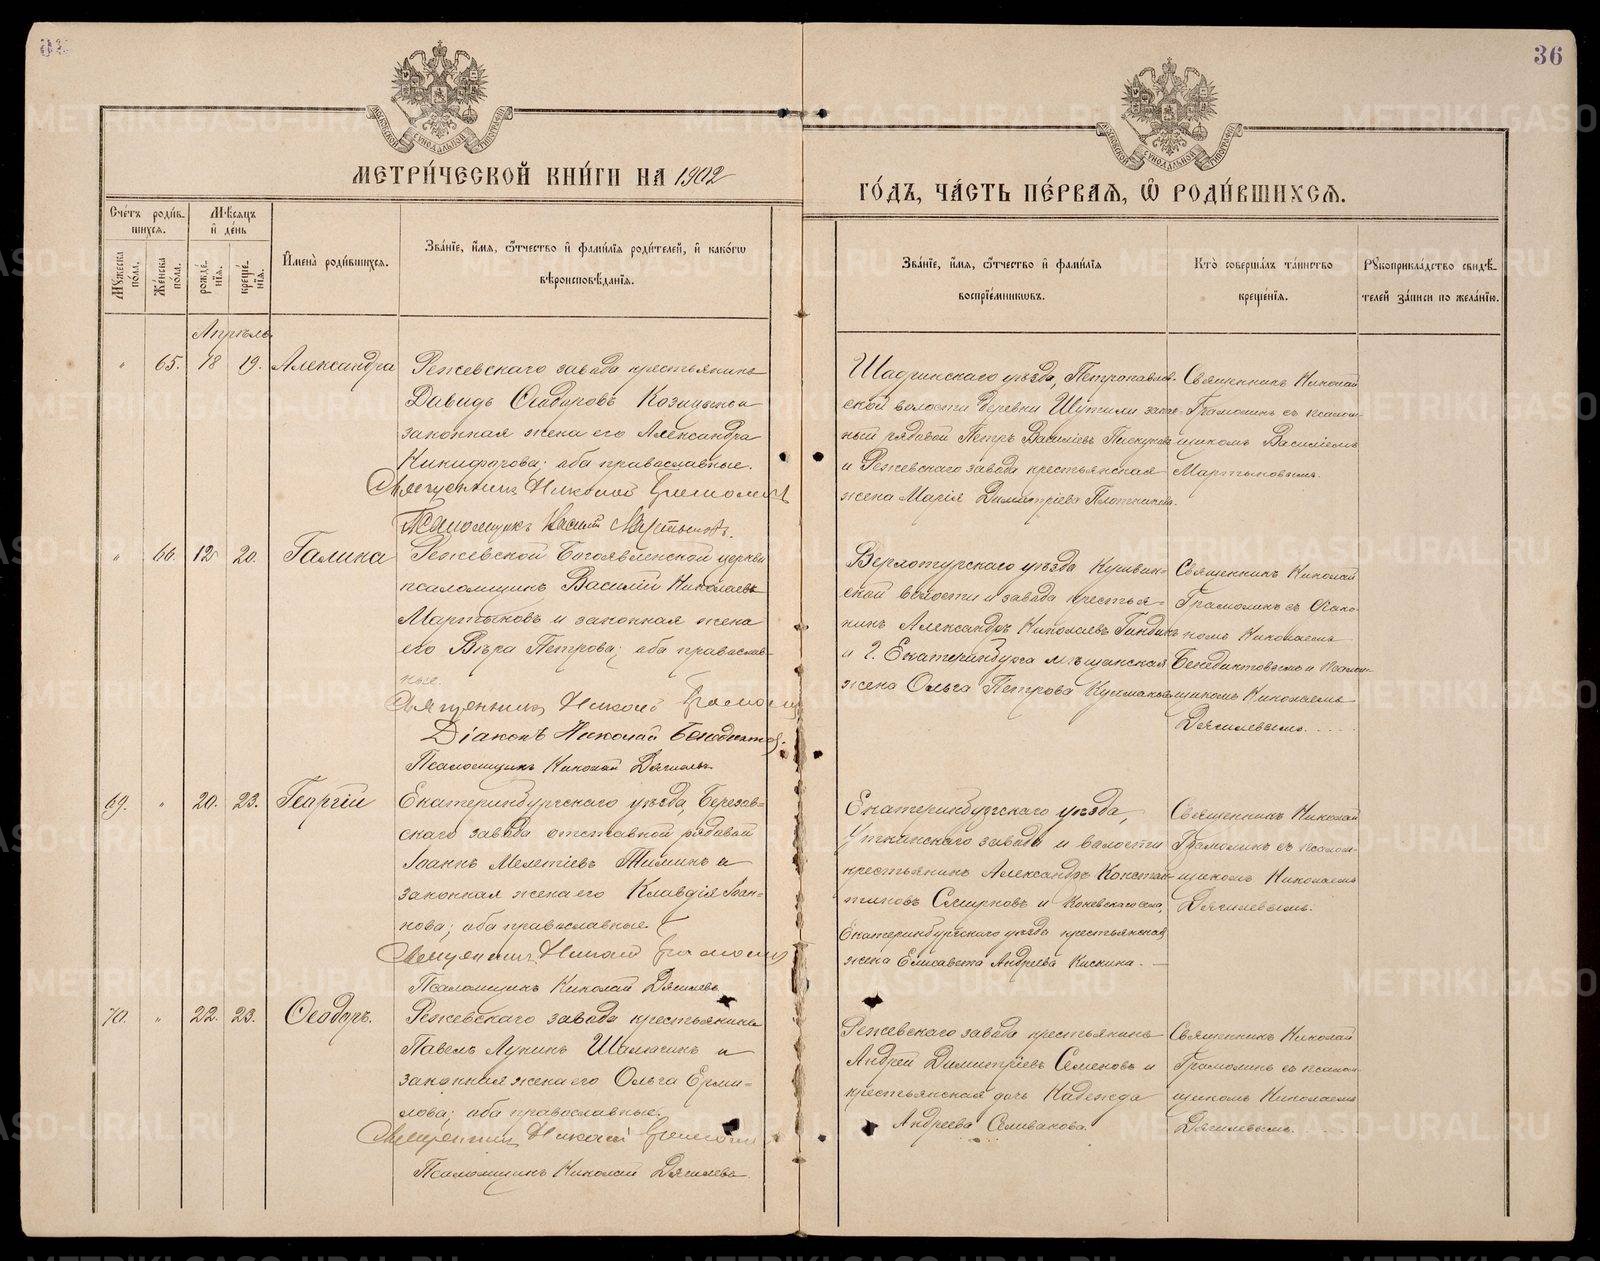 36
МЕТРИ́ЧЕСКОЙ КНИ́ГИ НА 1902
ГО́ДЪ, ЧА́СТЬ ПЕ́РВАѦ, Ѽ РОДИ́ВШИХСѦ.
Сче́тъ роди́в-
шихся.
Мѣ́сяцъ
и де́нь
Мꙋ́жеска по́ла.
Же́нска по́ла.
рожде́нїя.
креще́нїя.
И҆мена̀ роди́вшихся.
Зва́нїе, и҆́мя, ѻ҆́тчество и҆ фами́лїя роди́телей, и҆ како́гѡ
вѣроисповѣ́данїя.
Зва́нїе, и҆́мя, ѻ҆́тчество и҆ фами́лїя
воспрїе́мникѡвъ.
Кто̀ соверша́лъ та́инство
креще́нїя.
Рꙋкоприкла́дство свидѣ́-
телей за́писи по жела́нїю.
Апрѣль
" 65. 18 19. Александра
Режевскаго завода крестьянинъ
Давидъ Ѳеодоровъ и
законная жена его Александра
Никифорова; оба православные.
Священникъ Николай Грамолинъ
Псаломщикъ Василий Мартыновъ.
Шадринскаго уѣзда, Петропавлов-
ской волости деревни запас-
ный рядовой Петръ Василіевъ Пискуновъ
и Режевскаго завода крестьянская
жена Марія Димитріева Плотникова.
Священникъ Николай
Грамолинъ съ псалом-
щикомъ Василіемъ
Мартыновымъ.
" 66. 12 20. Галина
Режевской Богоявленской церкви
псаломщикъ Василій Николаевъ
Мартыновъ и законная жена
его Вѣра Петрова; оба православ-
ные.
Священникъ Николай Грамолинъ
Діаконъ Николай Бенедиктовъ
Псаломщикъ Николай Дягилевъ
Верхотурскаго уѣзда Кушвин-
ской волости и завода крестья-
нинъ Александръ Николаевъ
и г. Екатеринбурга мѣщанская
жена Ольга Петрова
Священникъ Николай
Грамолинъ съ діако-
номъ Николаемъ
Бенедиктовымъ и псалом-
щикомъ Николаемъ
Дягилевымъ.
69. " 20. 23. Георгій
Екатеринбургскаго уѣзда, Березов-
скаго завода отставной рядовой
Іоаннъ Мелетіевъ Тиминъ и
законная жена его Клавдія Іоан-
нова; оба православные.
Священникъ Николай Грамолинъ
Псаломщикъ Николай Дягилевъ
Екатеринбургскаго уѣзда,
Уткинскаго завода и волости
крестьянинъ Александръ Констан-
тиновъ Смирновъ и Коневскаго села,
Екатеринбургскаго уѣзда крестьянская
жена Елисавета Андреева Кискина.
Священникъ Николай
Грамолинъ съ псалом-
щикомъ Николаемъ
Дягилевымъ.
70. " 22. 23. Ѳеодоръ.
Режевскаго завода крестьянинъ
Павелъ Лукинъ Шаманинъ и
законная жена его Ольга Ерми-
лова; оба православные.
Священникъ Николай Грамолинъ
Псаломщикъ Николай Дягилевъ
Режевскаго завода крестьянинъ
Андрей Димитріевъ Семеновъ и
крестьянская дочь Надежда
Андреева Селиванова.
Священникъ Николай
Грамолинъ съ псалом-
щикомъ Николаемъ
Дягилевымъ.
METRIKI.GASO-URAL.RU